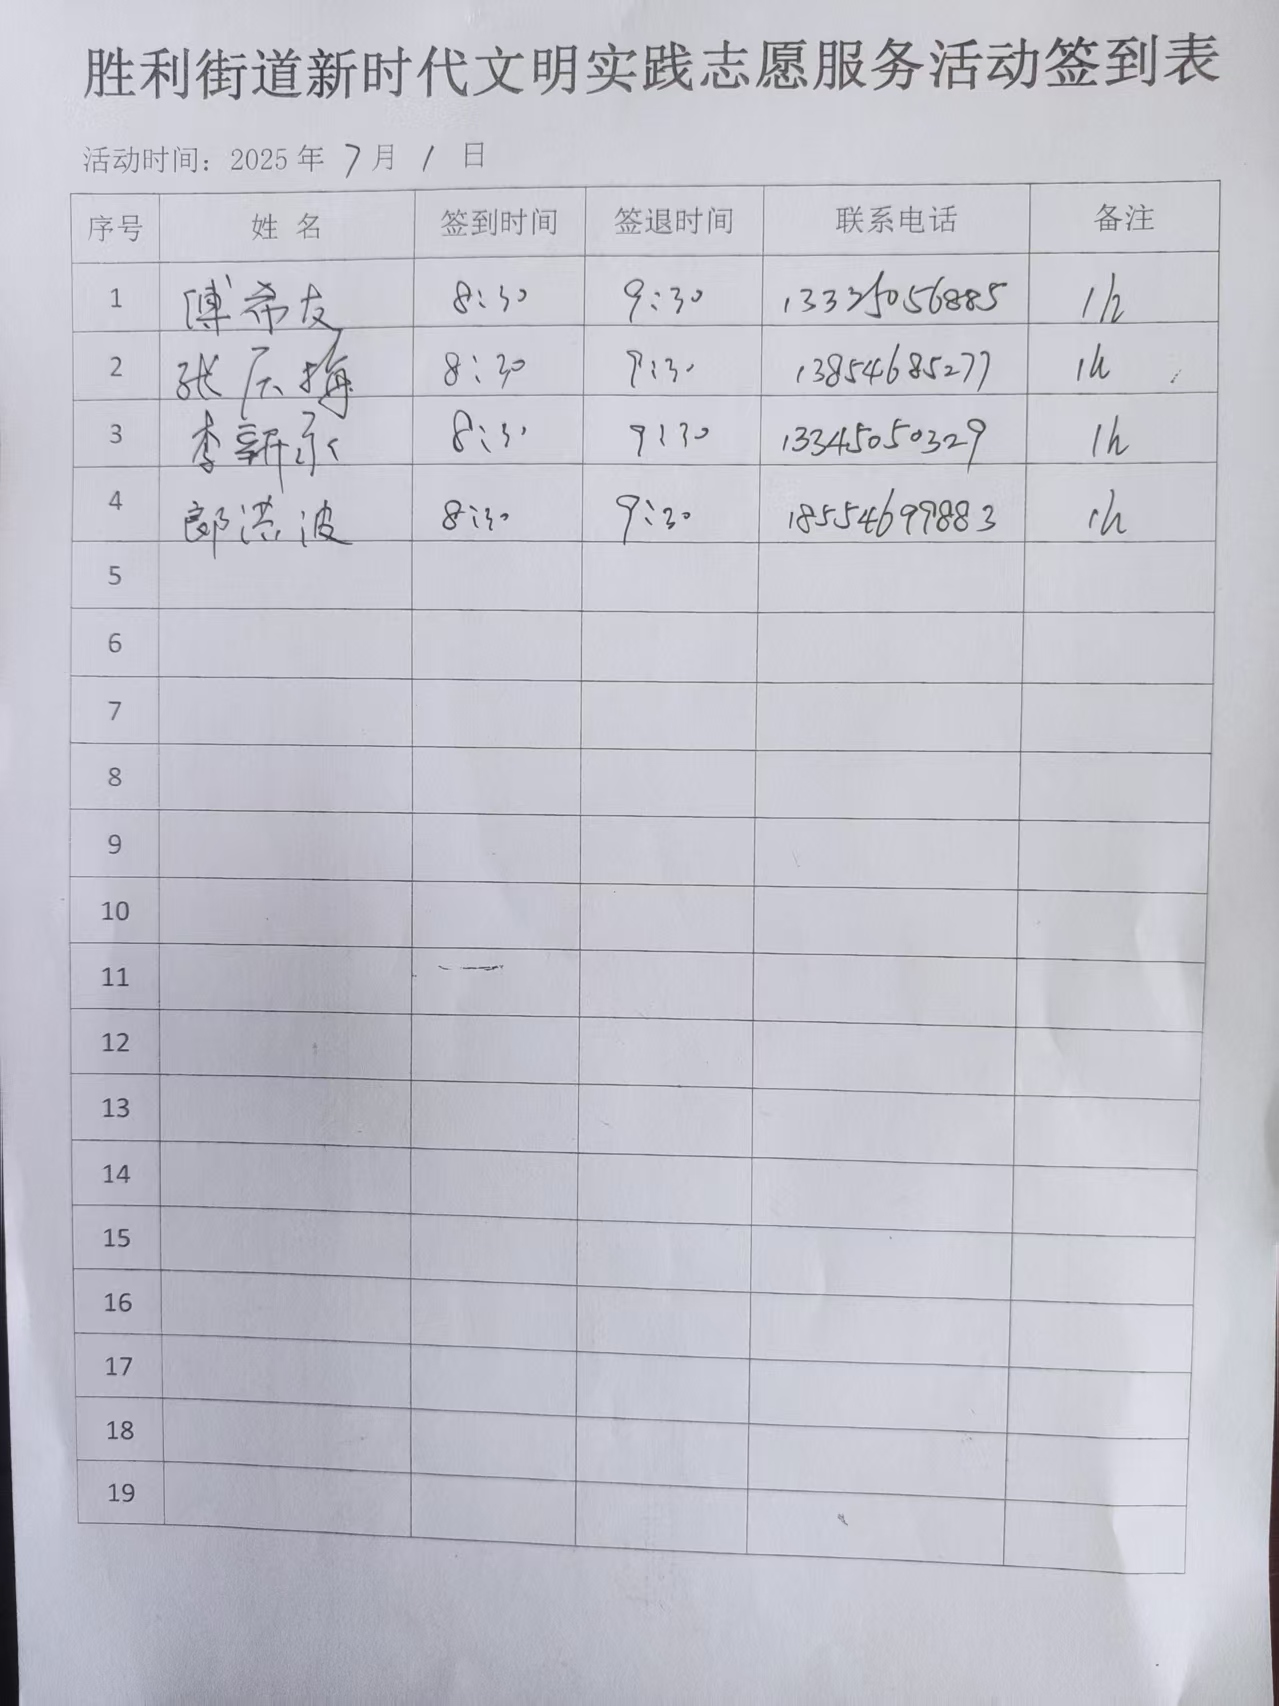 胜利街道新时代文明实践志愿服务活动签到表
活动时间：2025 年 7 月 1 日
序号 姓 名 签到时间 签退时间 联系电话 备注
1 傅希友 8:30 9:30 13335056885 1h
2 张 梅 8:30 9:30 13854685277 1h
3 李新永 8:30 9:30 13345050329 1h
4 郎洪波 8:30 9:30 18554699883 1h
5
6
7
8
9
10
11
12
13
14
15
16
17
18
19